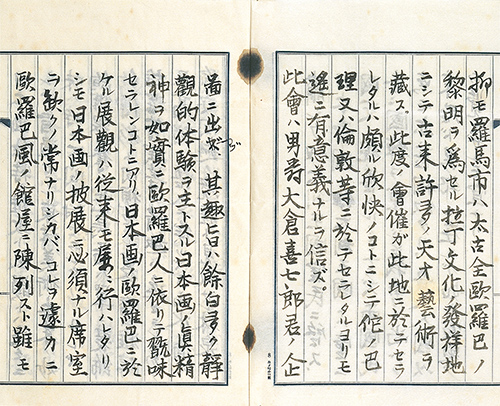 抑モ羅馬市ハ太古全歐羅巴ノ
黎明ヲ爲セル拉丁文化ノ發祥地
ニシテ古来許多ノ天才藝術ヲ
藏ス此度ノ會催ガ此地ニ於テセラ
レタルハ頗ル欣快ノコトニシテ佗ノ巴
理又ハ倫敦等ニ於テセラレタルヨリモ
遙ニ有意義ナルヲ信ズ
此會ハ男爵大倉喜七郎君ノ企
畵ニ出デ其趣旨ハ餘白多ク静
觀的体験ヲ主トスル日本画ノ眞精
神ヲ如實ニ歐羅巴人ニ依リテ翫味
セラレンコトニアリ日本画ノ歐羅巴ニ於
ケル展觀ハ従来モ屡〻行ハレタリ
シモ日本画ノ披展ニ必須ナル席室
ヲ欠クノ常ナリシカバコレヲ遠カニ
歐羅巴風ノ館屋ニ陳列スト雖モ